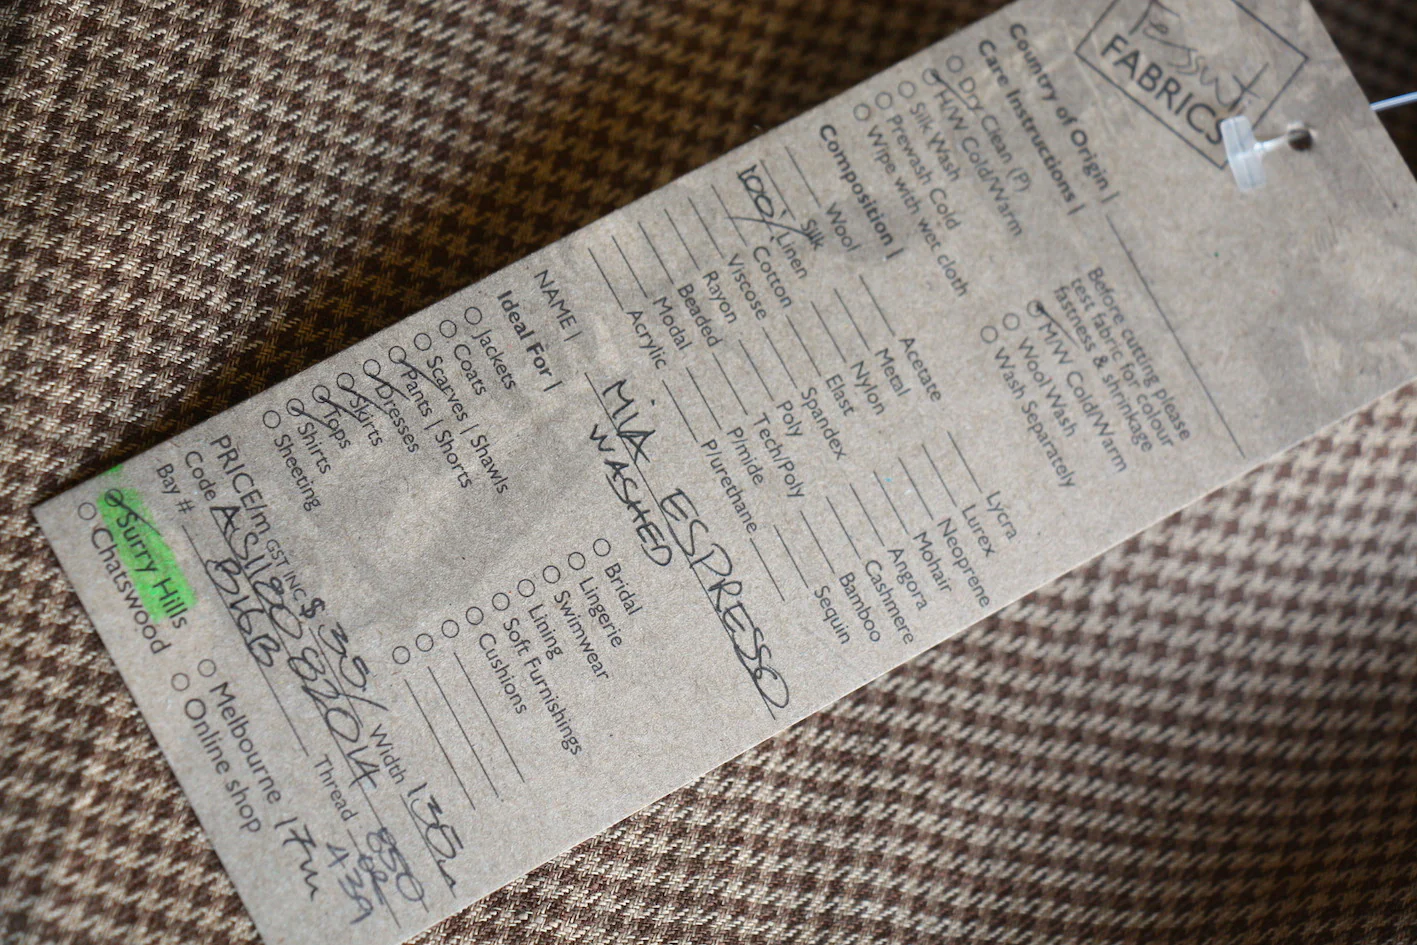 Tessuti
FABRICS
Country of Origin |
Care Instructions |
Dry Clean (P)
H/W Cold/Warm
Silk Wash
Prewash Cold
Wipe with wet cloth
Before cutting please
test fabric for colour
fastness & shrinkage
M/W Cold/Warm
Wool Wash
Wash Separately
Composition |
Wool
Silk
100% Linen
Cotton
Viscose
Rayon
Beaded
Modal
Acrylic
Acetate
Metal
Nylon
Elast
Spandex
Poly
Tech/Poly
P/mide
P/urethane
Lycra
Lurex
Neoprene
Mohair
Angora
Cashmere
Bamboo
Sequin
NAME | MIA ESPRESSO
WASHED
Ideal For |
Jackets
Coats
Scarves | Shawls
Pants | Shorts
Dresses
Skirts
Tops
Shirts
Sheeting
Bridal
Lingerie
Swimwear
Lining
Soft Furnishings
Cushions
PRICE/m GST INC $ 39/ Width 135
Code AS1180 82014 Thread 850
Bay # B16B A39
Surry Hills
Chatswood
Melbourne 17m
Online shop